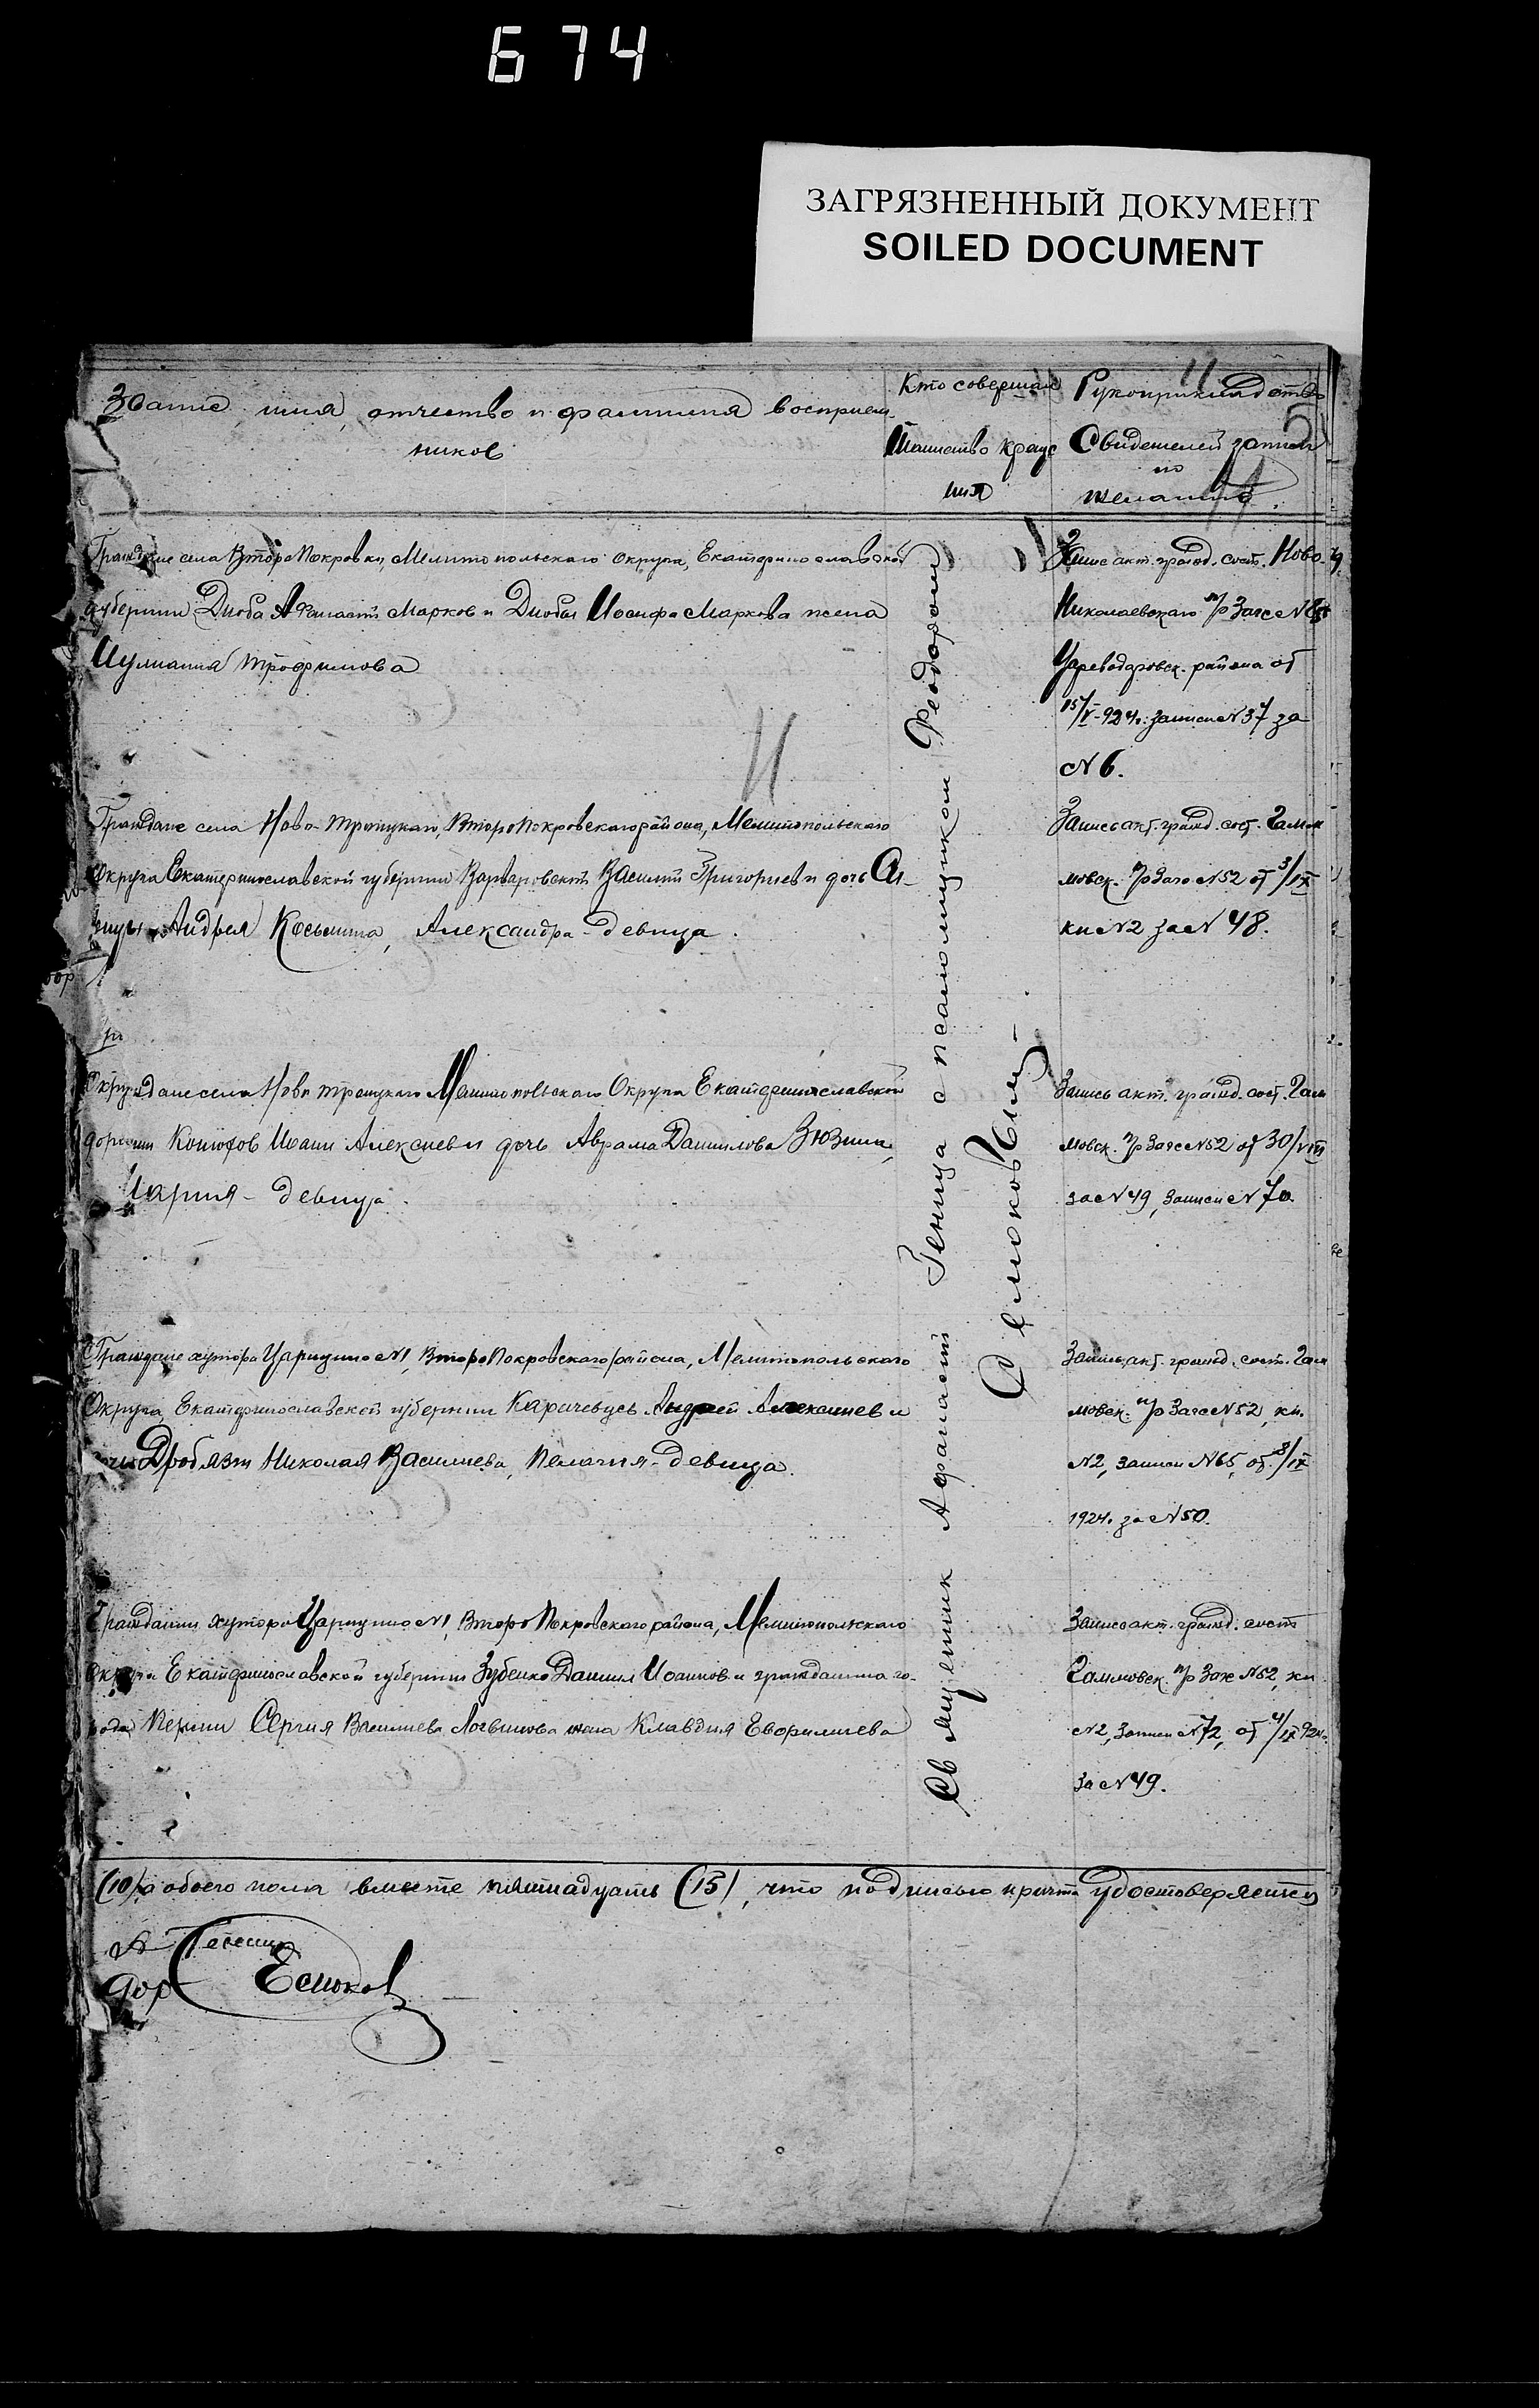 674
ЗАГРЯЗНЕННЫЙ ДОКУМЕНТ
SOILED DOCUMENT
Звание, имя, отчество и фамилия восприем-
ников
Кто совершал
таинство креще
ния
Рукоприкладство
Свидетелей записи
по
желанию.
Граждане села ВтороПокровки, Мелитопольскаго округа, Екатеринославской
губернии Дюба Афанасий Марков и Дюбы Иосифа Маркова жена
Иулиания Трофимова
Запись акт. гражд. сост. Ново-
Николаевскаго п/р Загс №
района от
15/V-924г. записи №37 за
№6.
Граждане села Ново-Троицкаго, ВтороПокровскаго района, Мелитопольскаго
Округа Екатеринославской губернии Варваровский Василий Григориев и дочь
Андрея Косьмина, Александра-девица.
Запись акт. гражд. сост. Гамм
мовск. п/р Загс №52 от 3/IX
кн №2 за №48.
села Ново Троицкаго Мелитопольскаго Округа Екатеринославской
Конюхов Иоанн Алексиев и дочь Аврама Даниилова Зюзина,
Мария-девица.
Запись акт. гражд. сост. Гам
мовск. п/р Загс №52 от 30/VIII
за №49, записи №70.
Граждане хутора Царицино №1, ВтороПокровского района, Мелитопольскаго
Округа, Екатеринославской губернии Каричевцев Андрей Алексиев и
дочь Дробязги Николая Василиева, Пелагия-девица.
Запись акт. гражд. сост. Гам
мовск. п/р Загс №52, кн.
№2, записи №65, от 3/IX
1924г. за №50.
Гражданин хутора Царицино №1, ВтороПокровского района, Мелитопольскаго
округа Екатеринославской губернии Зубенко Даниил Иоаннов и гражданина го-
рода Перми Сергия Василиева Логвинова жена Клавдия Евфимиева
Запись акт. гражд. сост
Гаммовск. п/р Загс №52, кн
№2, записи №72, от 4/IX 924г.
за №49.
Священник Афанасий Геница с псаломщиком Феодором
Есмоковым.
(10), а обоего пола вместе пятнадцать (15), что подписью причта удостоверяется
А Геница
Есмоков